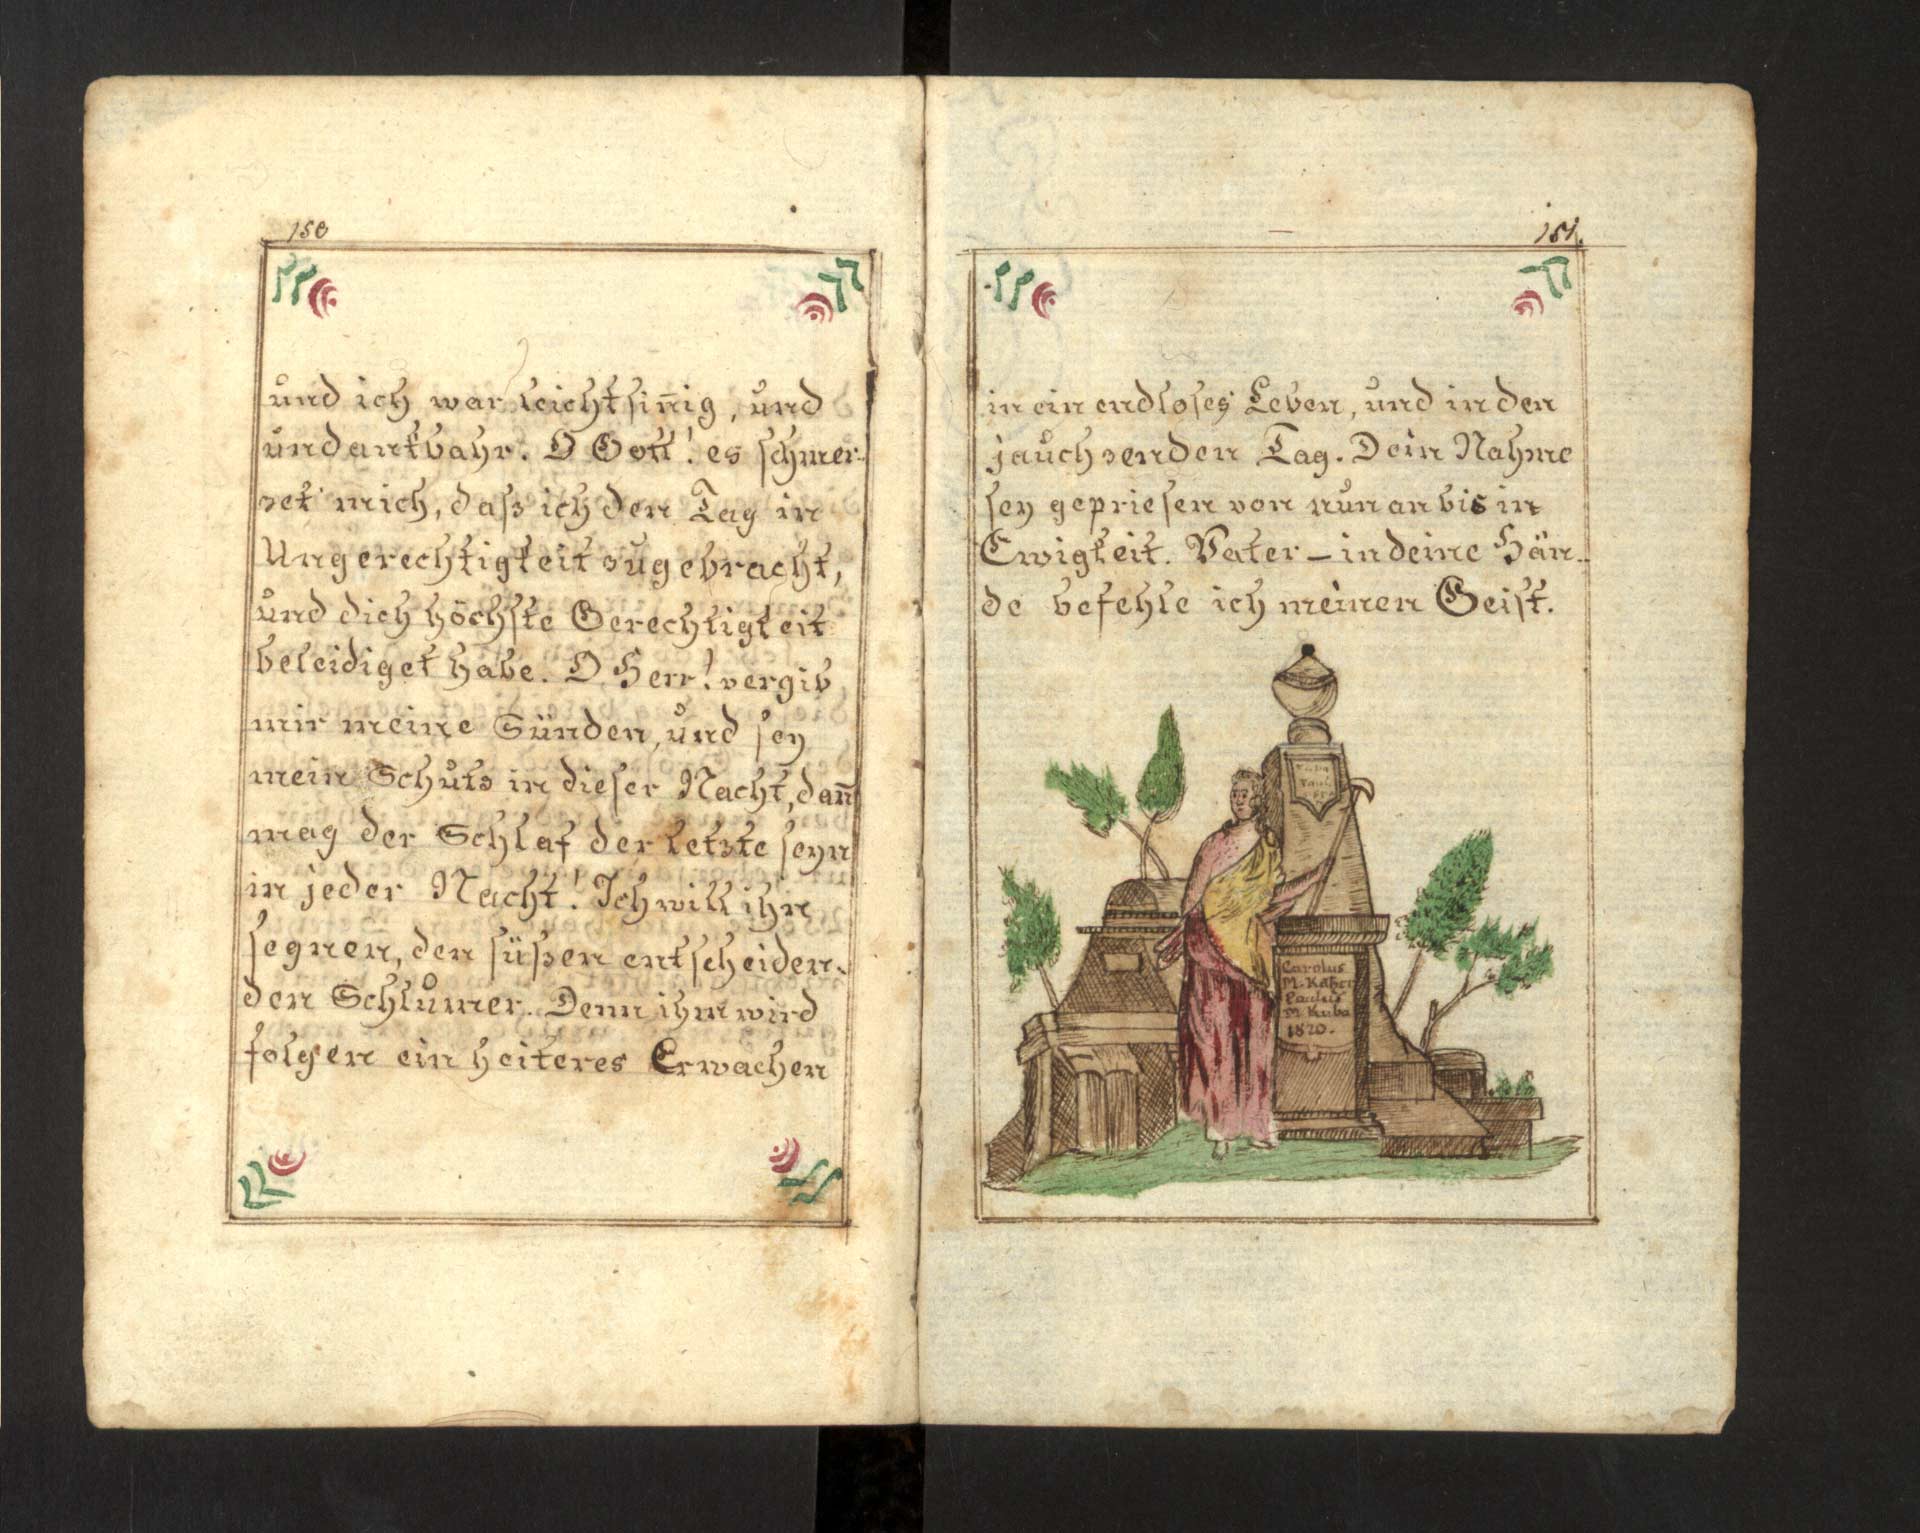 150
und ich war leichtsin̄ig, und
undankbahr. O Gott! es schmer-
zet mich, daß ich den Tag in
Ungerechtigkeit zugebracht,
und dich höchste Gerechtigkeit
beleidiget habe. O Herr! vergib
mir meine Sünden, und sey
mein Schutz in dieser Nacht, dan̄
mag der Schlaf der letzte seyn
in jeder Nacht! Ich will ihn
segnen, den süßen entscheiden-
den Schlum̄er. Denn ihm wird
folgen ein heiteres Erwachen
151.
in ein endloses Leben, und in den
jauchzenden Tag. Dein Nahme
sey gepriesen von nun an bis in
Ewigkeit. Vater – in deine Hän-
de befehle ich meinen Geist.
Carolus
M. Katzer
Paulus
M. Kuba
1820.